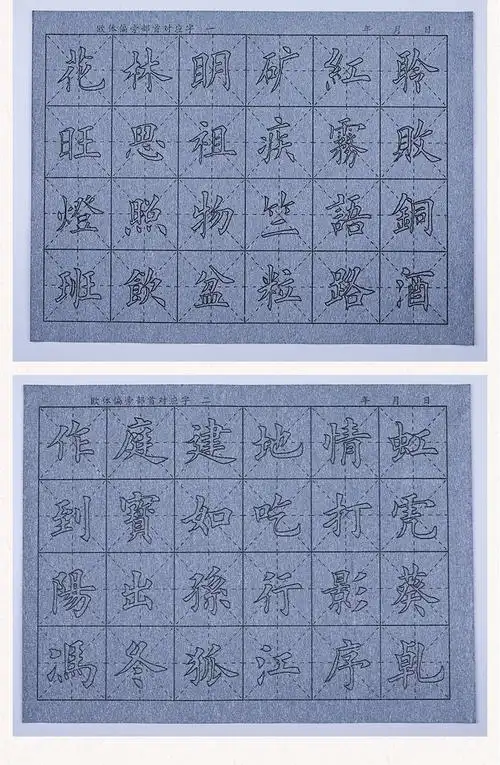 欧体偏旁部首对应字 一 年 月 日
花林明矿紅聆
旺思祖疾霧敗
燈照物竺語銅
班飲盆粒路酒
欧体偏旁部首对应字 二 年 月 日
作庭建地情虹
到寶如吃打虎
陽出孫行影葵
馮冬狐江序乹